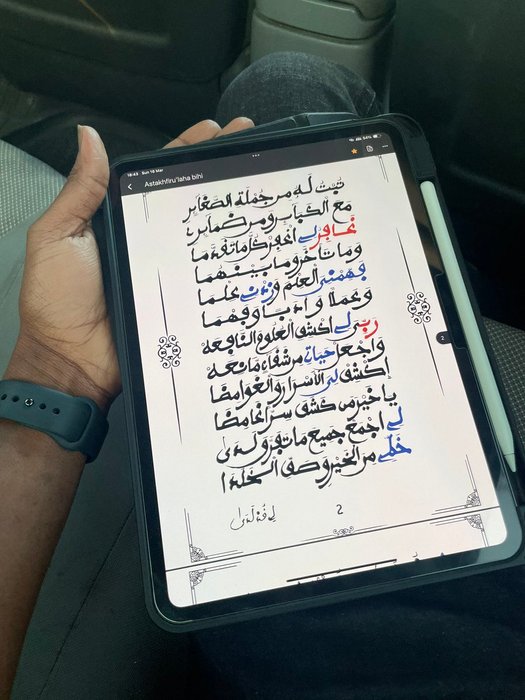 16:43 Sun 16 Mar
54%
Astakhfiru'laha bihi
تبت له من جملة الصغاير
مع الكباير ومن ضماير
اغفر كل ما تقدما
وما تأخر وما بينهما
وفهمني العلم وزدني علما
وعملا وأدبا وفهما
ربي لي اكشف العلوم النافعه
واجعل حياتي من شقاء مانعه
اكشف لي الأسرار والغوامضا
يا خير من كشف سرا غامضا
لي اجمع جميع ما تفرق
من الخير وصف
2
2